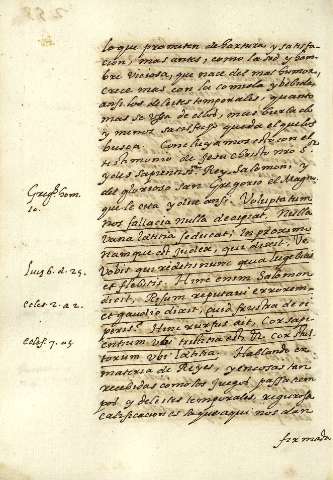 lo que prometen de hartura, y satisfa-
cion, mas antes, como la sed y ham-
bre viciosa, que nace del mas humor,
crece mas con la comida y bebida,
ansi los deleites temporales, quanto
mas se usa de ellos, mas burlado
y menos satisfecho queda el que los
busca. Concluyamos esto con el
testimonio de Jesu christo nro Sr
y del sapientiss.º Rey, Salomon, y
del glorioso san Gregorio el Magno,
que lo cita y dice ansi. Voluptatum
Greg.º hom.
10.
nos fallacia nulla decipiat, nulla
vana lætitia seducat: in proximo
namque est Judex, qui dixit. Væ
vobis qui ridetis nunc quia lugebitis
Luc. 6. d. 25.
et flebitis. Hinc enim Salomon
dicit. Risum reputavi errorem,
Eccles. 2. a 2.
et gaudio dixi: Quid frustra de ci
peris? Hinc rursus ait, Cor sapi
Eccles. 7. a 5
entium ubi tristitia est: et Cor stul
torum ubi lætitia. Hablando en
materia de Reyes, y en cosas tan
recebidas como los juegos, passatiem
pos y deleites temporales, rigurosa
calificacion es la que aqui nos dan
firmada